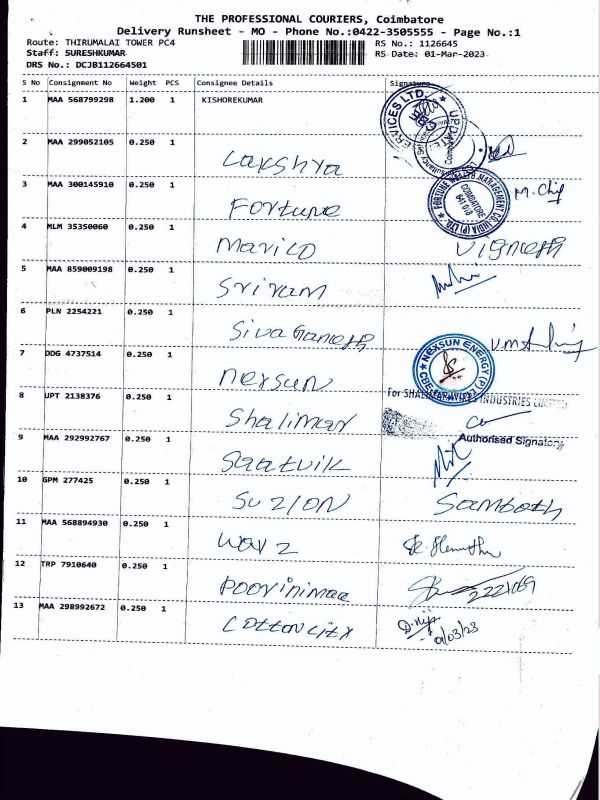 THE PROFESSIONAL COURIERS, Coimbatore
Delivery Runsheet - MO - Phone No.:0422-3505555 - Page No.:1
Route: THIRUMALAI TOWER PC4 RS No.: 1126645
Staff: SURESHKUMAR RS Date: 01-Mar-2023
DRS No.: DCJB112664501
S No Consignment No Weight PCS Consignee Details Signature
1 MAA 568799298 1.200 1 KISHOREKUMAR
2 MAA 299052105 0.250 1 Lakshya
3 MAA 300145910 0.250 1 Fortune M. Chif
4 MLM 35350060 0.250 1 Marico Vignesh
5 MAA 859009198 0.250 1 Sriram
6 PLN 2254221 0.250 1 Siva Ganesh
7 DDG 4737514 0.250 1 Nexsun NEXSUN ENERGY (P) LTD CBE
8 UPT 2138376 0.250 1 Shalimar For INDUSTRIES LIMITED
Authorised Signatory
9 MAA 292992767 0.250 1 Saatvik
10 GPM 277425 0.250 1 Suzlon Samboth
11 MAA 568894930 0.250 1 Wav2
12 TRP 7910640 0.250 1 Poorinimaa 2221069
13 MAA 298992672 0.250 1 Cotton City 01/03/23